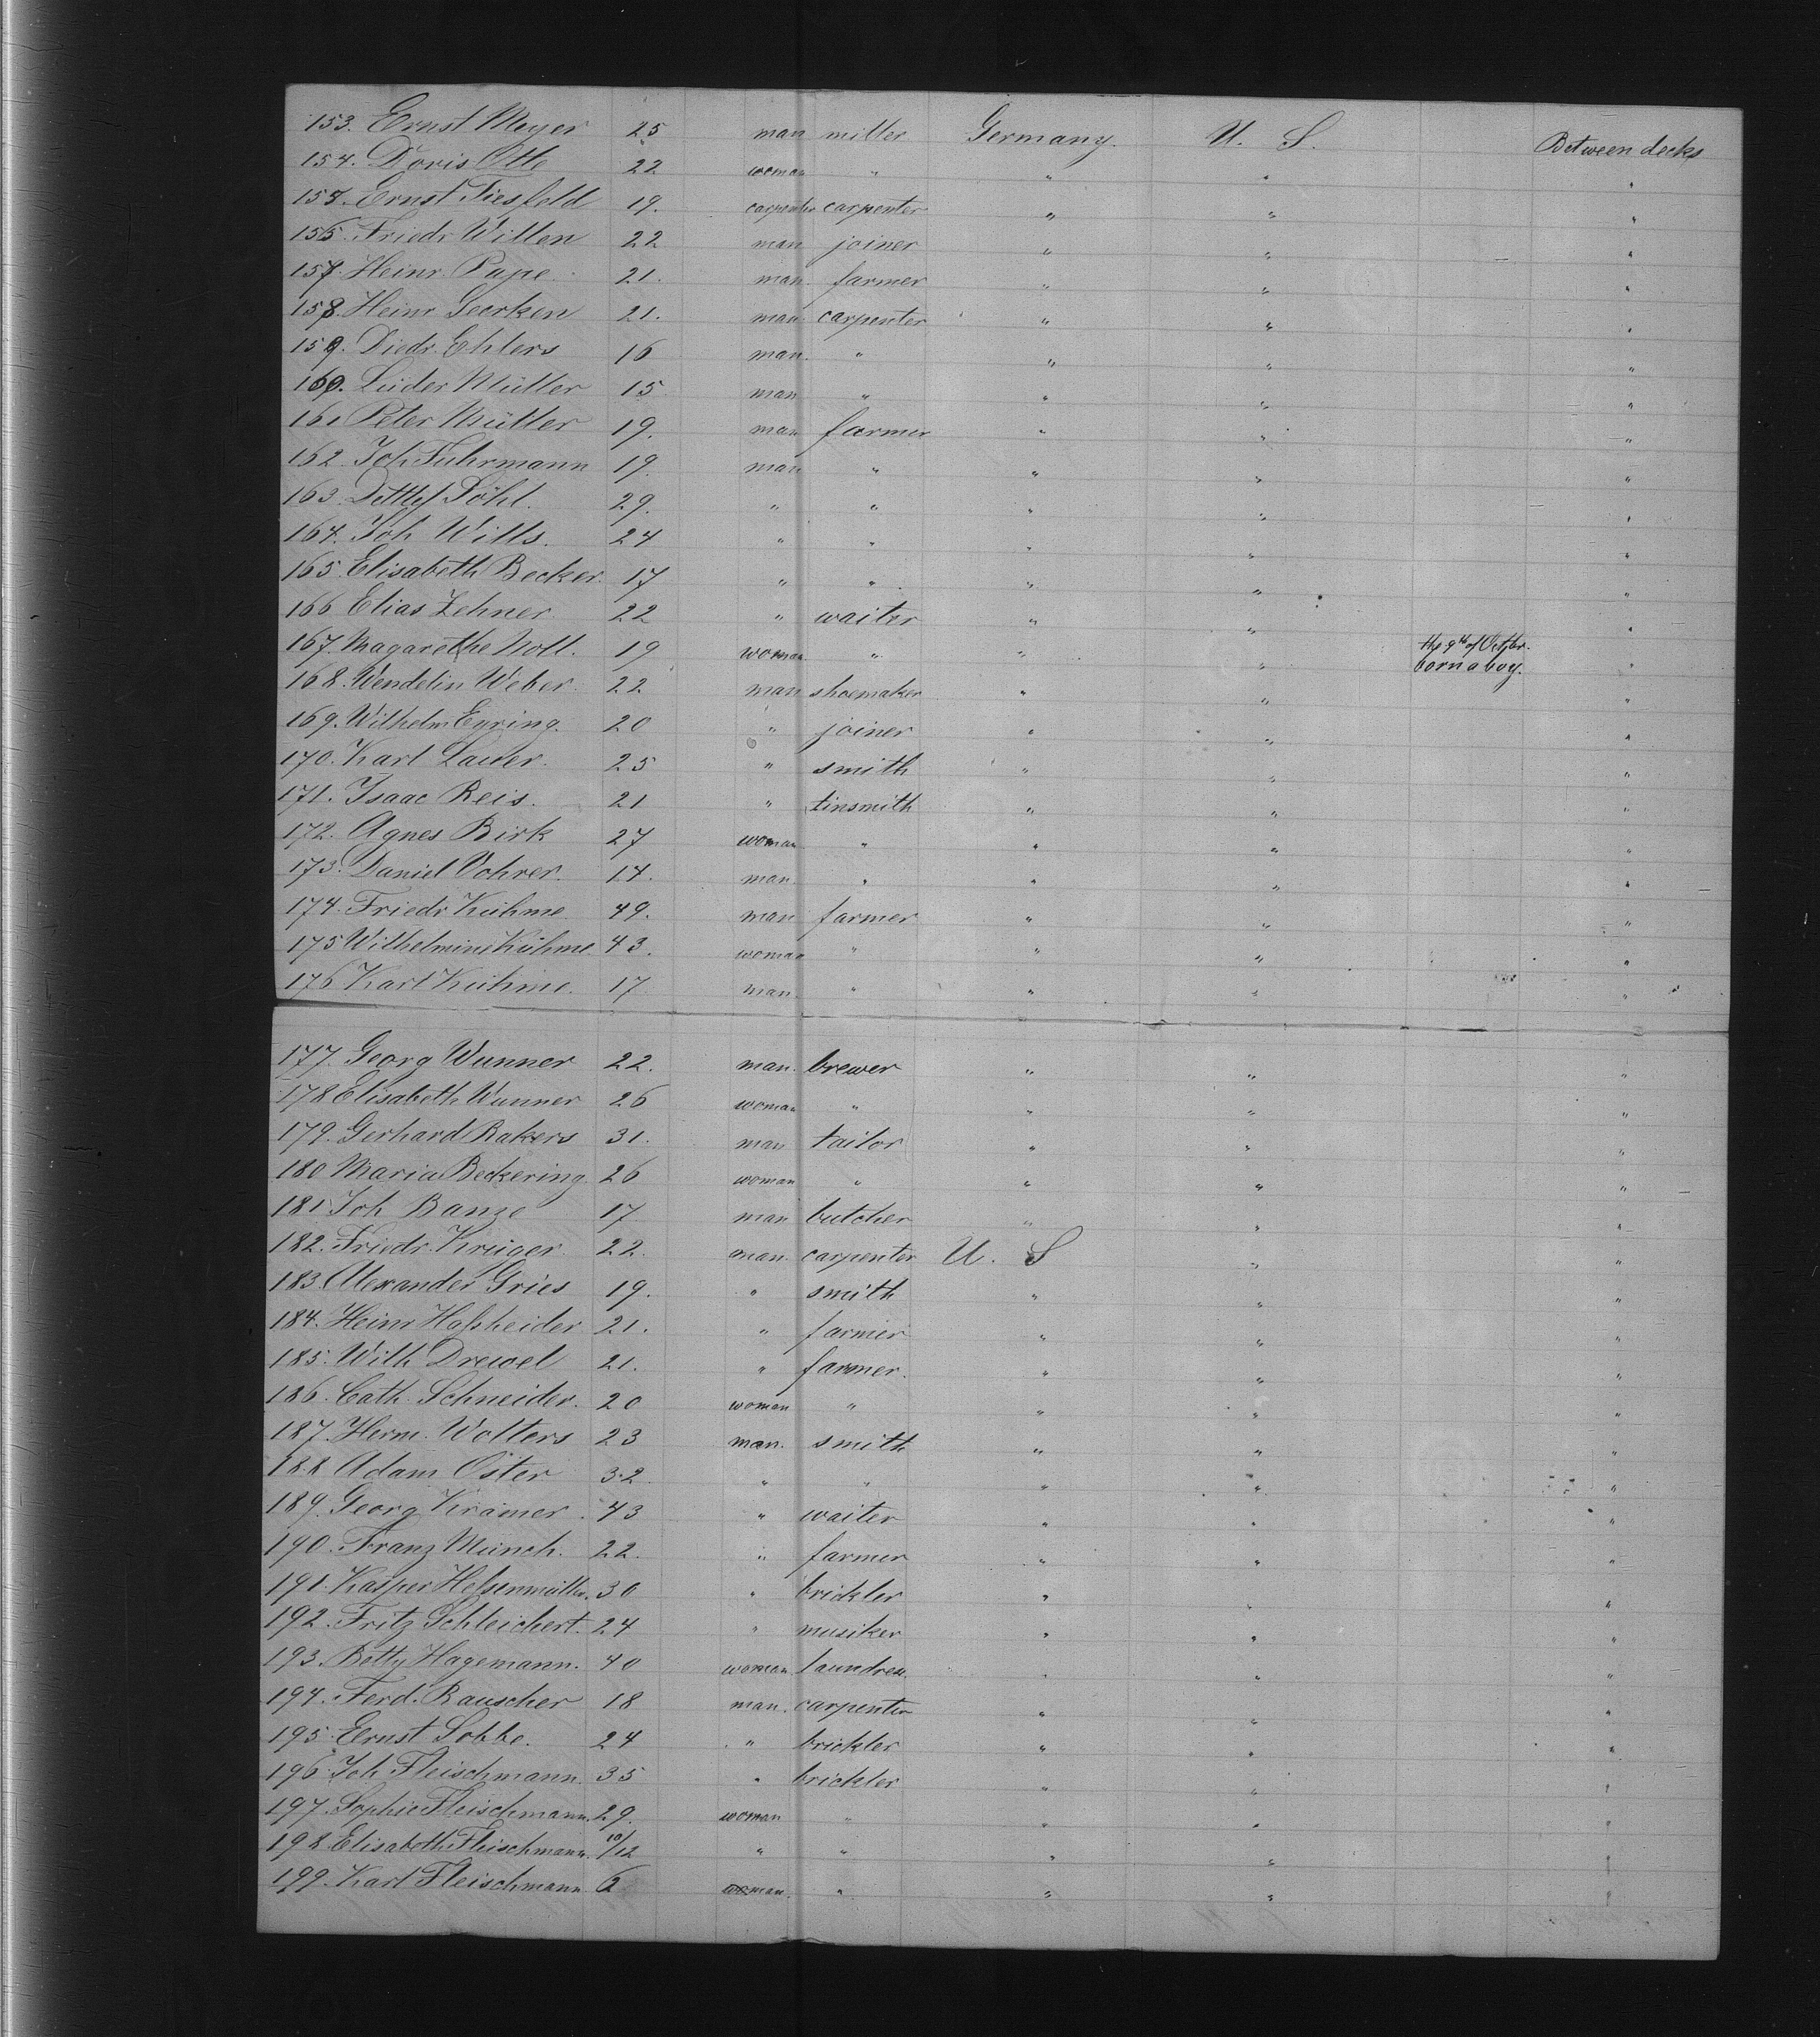 153. Ernst Meyer 25 man miller Germany. U. S. Between decks
154. Doris Otte 22 woman " " " "
155. Ernst Fiesfeld 19. carpenter carpenter " " "
156. Friedr. Witten 22 man joiner " " "
157. Heinr. Pape 21. man. farmer " " "
158. Heinr Geerken 21. man carpenter " " "
159. Diedr. Ehlers 16 man. " " " "
160. Lüder Müller 15 man " " " "
161 Peter Müller 19. man farmer " " "
162. Joh Fuhrmann 19. man " " " "
163. Dettlef Söhl. 29. " " " " "
164. Joh Wills. 24 " " " " "
165. Elisabeth Becker 17 " " " " "
166 Elias Zehner. 22 " waiter " " "
167. Magarethe Noll. 19 woman " " " the 9th of Octbr. born a boy. "
168. Wendelin Weber. 22 man shoemaker " " "
169. Wilhelm Eyring. 20 " joiner " " "
170. Karl Lauer. 25 " smith " " "
171. Isaac Reis. 21 " tinsmith " " "
172. Agnes Birk 27 woman " " " "
173. Daniel Vohrer. 14. man. " " " "
174. Friedr Kühme 49. man farmer " " "
175 Wilhelmine Kühme. 43. woman " " " "
176 Karl Kühme. 17. man. " " " "
177. Georg Wunner 22. man. brewer " " "
178 Elisabeth Wunner 26 woman " " " "
179. Gerhard Rakers 31. man tailor " " "
180 Maria Beckering 26 woman " " " "
181 Joh Banse 17 man butcher " " "
182. Friedr. Krüger 22. man. carpenter U. S " "
183. Alexander Gries 19. " smith " " "
184. Heinr Haßheider 21. " farmer " " "
185. Wilh Drewel 21. " farmer. " " "
186. Cath. Schneider. 20 woman " " " "
187. Herm. Wolters 23 man. smith " " "
188 Adam Oster 32. " " " " "
189. Georg Krämer. 43 " waiter " " "
190. Franz Münch. 22. " farmer " " "
191. Kasper Heßenmüller. 30 " brickler " " "
192. Fritz Schleichert. 24 " musiker " " "
193. Betty Hagemann. 40 woman laundress. " " "
194. Ferd. Rauscher 18 man. carpenter " " "
195. Ernst Sobbe. 24 " brickler " " "
196 Joh Fleischmann. 35 " brickler " " "
197. Sophie Fleischmann. 29. woman " " " "
198. Elisabeth Fleischmann. 10/12 " " " " "
199. Karl Fleischmann 6 man. " " " "